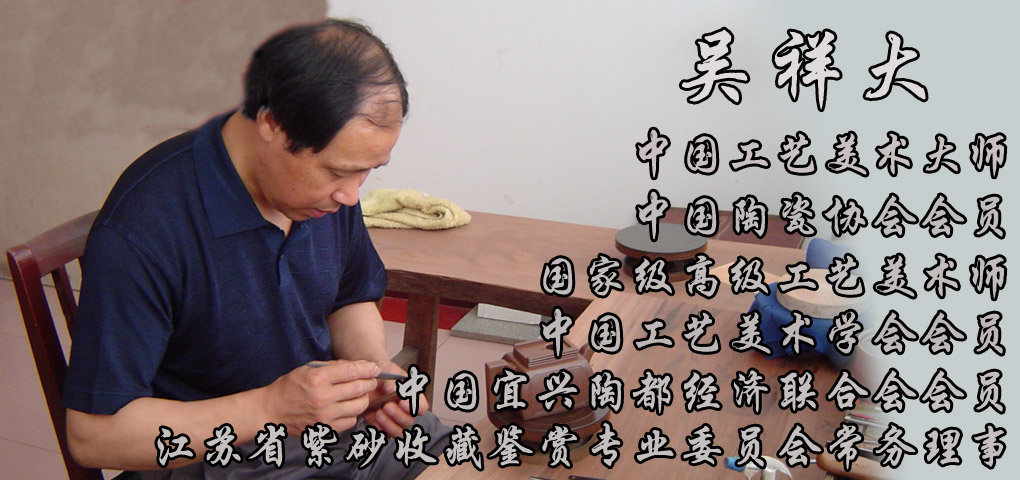 吴祥大
中国工艺美术大师
中国陶瓷协会会员
国家级高级工艺美术师
中国工艺美术学会会员
中国宜兴陶都经济联合会会员
江苏省紫砂收藏鉴赏专业委员会常务理事